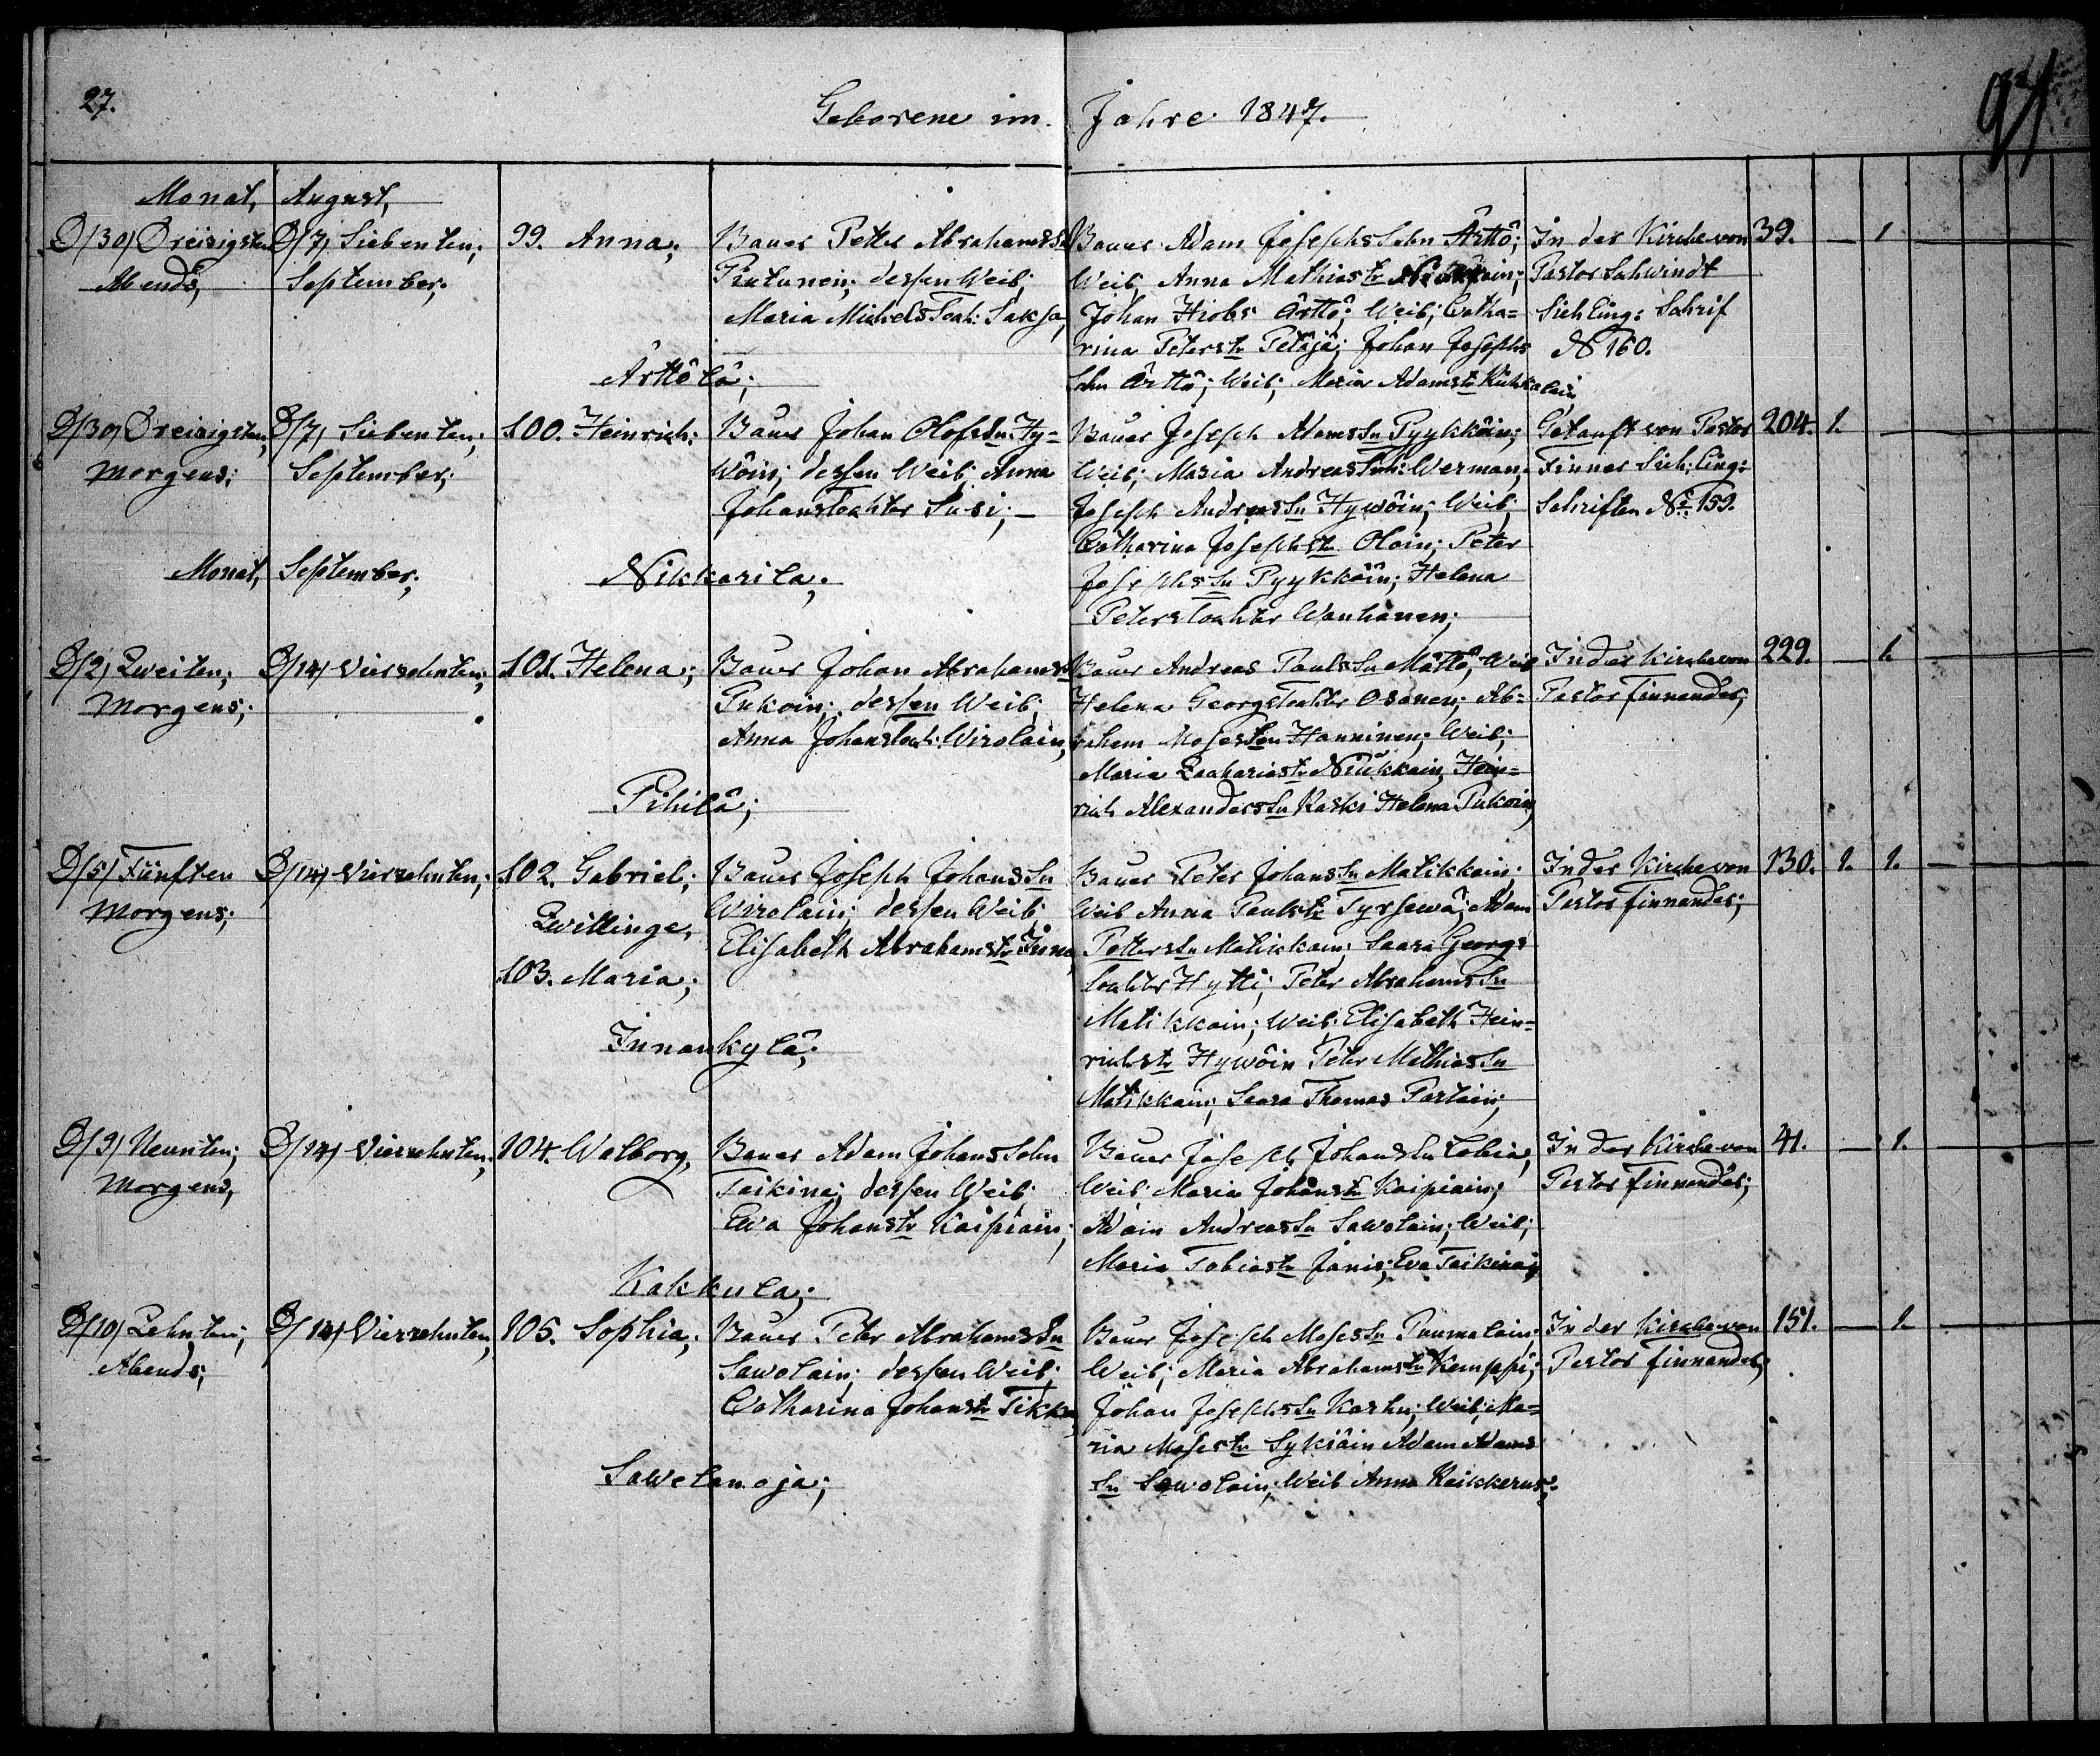 27.
Geborene im Jahre 1847.
91
Monat, August,
D/30/ Dreizigsten Abends,
D/7/ Siebenten; September;
99. Anna;
Bauer Peter Abrahamssn
dessen Weib;
Maria Michels Toch: Saksa,
Ärttölä;
Bauer Adam Josephs Sohn Ärttö;
Weib, Anna Mathiastr
Johan Hiobs Ärttö; Weib; Catha=
rina Peterstr Petäjä; Johan Josephs
Sohn Ärttö; Weib; Maria Adamstr Kukkalain
In der Kirche von
Pastor Schwindt
Sieh Eing: Schrif
N 160.
39. — 1
D/30/ Dreizigsten,
Morgens;
D/7/ Siebenten;
September;
100. Heinrich;
Bauer Johan Olofssn. Hy=
wöin; dessen Weib; Anna
Johanstochter Susi; —
Bauer Joseph Adamssn Pyykköin;
Weib; Maria Andreas Werman;
Joseph Andreassn Hywöin; Weib,
Catharina Josephstr Oloin; Peter
Josephssn Pyykköin; Helena
Peterstochter Wanhanen;
Getauft von Pastor
Finner Sieh: Eing:
Schriften No: 159.
204. 1.
Monat, September;
Nikkarila;
D/2/ Zweiten;
Morgens;
D/14/ Vierzehnten;
101. Helena;
Bauer Johan Abrahamssn
Pukoin; dessen Weib;
Anna Johanstoch: Wirolain,
Pihilä;
Bauer Andreas Paulssn Mättö, Weib
Helena Georgstochter Osonen; Ab=
raham Mosessn Hanninen; Weib;
Maria Zachariastr Niukkain, Hein=
rich Alexanderssn Kaski Helena Pukoin,
In der Kirche von
Pastor Finnander;
229. — 1.
D/5/ Fünften
Morgens;
D/14/ Vierzehnten;
102. Gabriel;
Zwillinge,
103. Maria;
Bauer Joseph Johanssn
Wirolain; dessen Weib
Elisabeth Abrahamstr Inna,
Innankylä;
Bauer Peter Johanssn Matikkain.
Weib Anna Paulstr Tyrsewä; Adam
Peterssn Matikkain; Saara Georgs
tochter Hytti; Peter Abrahamssn
Matikkain; Weib; Elisabeth Hein=
richstr Hywöin Peter Mathiassn
Matikkain; Saara Thomas Partain;
In der Kirche von
Pastor Finnander;
130. 1. 1.
D/9/ Neunten;
Morgens,
D/14/ Vierzehnten;
104. Walborg,
Bauer Adam Johans Sohn
Taikina; dessen Weib
Ewa Johanstr Kaipiain;
Kakkula;
Bauer Joseph Johanssn
Weib Maria Johanstr Kaipiain;
Adam Andreassn Sawolain; Weib;
Maria Tobiastr Jänis; Eva Taikina;
In der Kirche von
Pastor Finnander;
41. — 1.
D/10/ Zehnten;
Abends;
D/14/ Vierzehnten,
105. Sophia;
Bauer Peter Abrahamssn
Sawolain; dessen Weib;
Catharina Johanstr Tikka,
Sawolanoja;
Bauer Joseph Mosessn Puumalain;
Weib; Maria Abrahamstr Kemppi;
Johan Josephssn Karhu; Weib; Ma=
ria Mosestr Sykiäin Adam Adams
Sn Sawolain; Weib Anna
In der Kirche von
Pastor Finnander;
151. — 1.